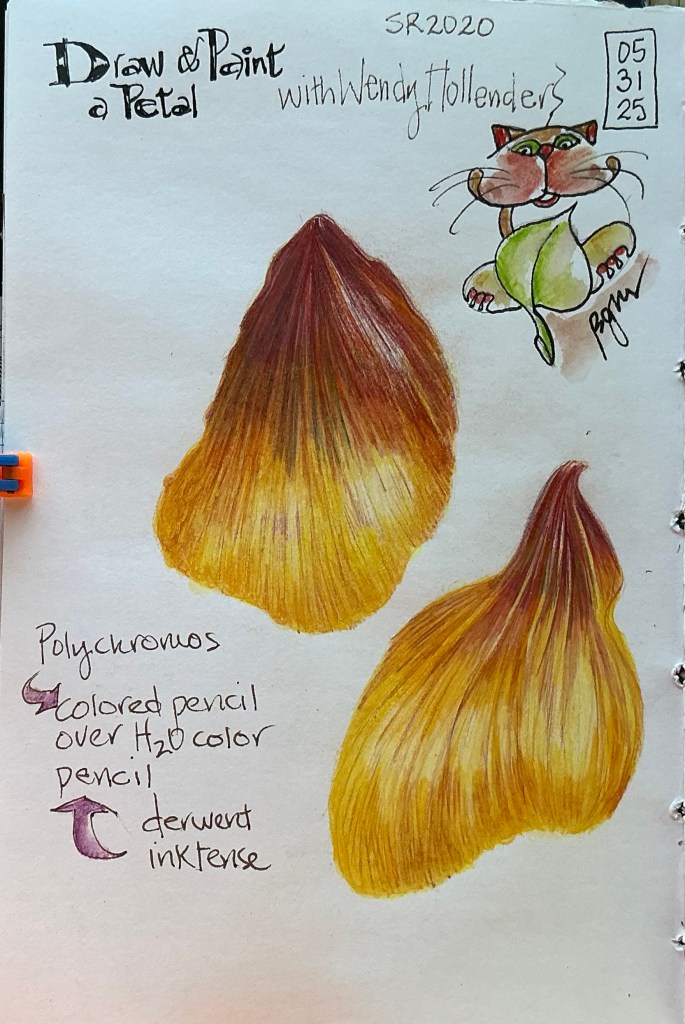 SR2020
Draw & Paint
a Petal
with Wendy Hollender
05
31
25
Bgm
Polychromos
colored pencil
over H₂O color
pencil
derwent
inktense